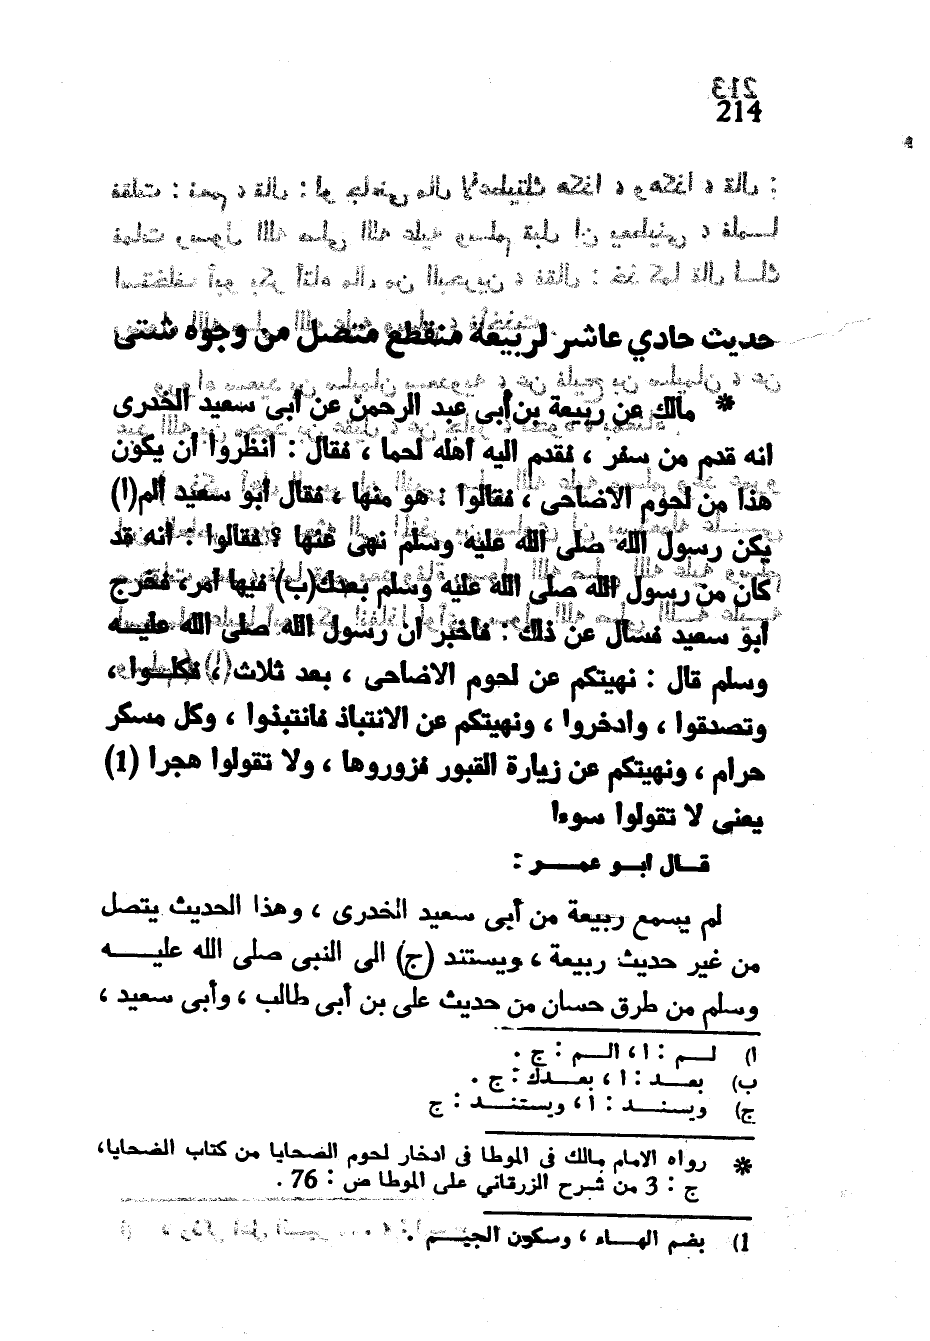 214
حديث حادي عاشر لربيعة منقطع متصل من وجوه شتى
* مالك عن ربيعة بن أبى عبد الرحمن عن أبى سعيد الخدرى
انه قدم من سفر ، فقدم اليه أهله لحما ، فقال : انظروا أن يكون
هذا من لحوم الاضاحى ، فقالوا : هو منها ، فقال أبو سعيد ألم(ا)
يكن رسول الله صلى الله عليه وسلم نهى عنها ؟ فقالوا : انه قد
كان من رسول الله صلى الله عليه وسلم بعدك(ب) فيها أمر، فخرج
أبو سعيد فسأل عن ذلك : فأخبر أن رسول الله صلى الله عليــه
وسلم قال : نهيتكم عن لحوم الاضاحى ، بعد ثلاث ، فكلــوا ،
وتصدقوا ، وادخروا ، ونهيتكم عن الانتباذ فانتبذوا ، وكل مسكر
حرام ، ونهيتكم عن زيارة القبور فزوروها ، ولا تقولوا هجرا (1)
يعنى لا تقولوا سوءا
قــال ابــو عمــــر :
لم يسمع ربيعة من أبى سعيد الخدرى ، وهذا الحديث يتصل
من غير حديث ربيعة ، ويستند (ج) الى النبى صلى الله عليـــــه
وسلم من طرق حسان من حديث على بن أبى طالب ، وأبى سعيد ،
ا) لـــم : ا ، الـــم : ج .
ب) بعـــد : ا ، بعـــدك : ج .
ج) ويسنـــد : ا ، ويستنـــد : ج
* رواه الامام مالك فى الموطا فى ادخار لحوم الضحايا من كتاب الضحايا،
ج : 3 من شرح الزرقاني على الموطا ص : 76 .
1) بضم الهـــاء ، وسكون الجيـــم .